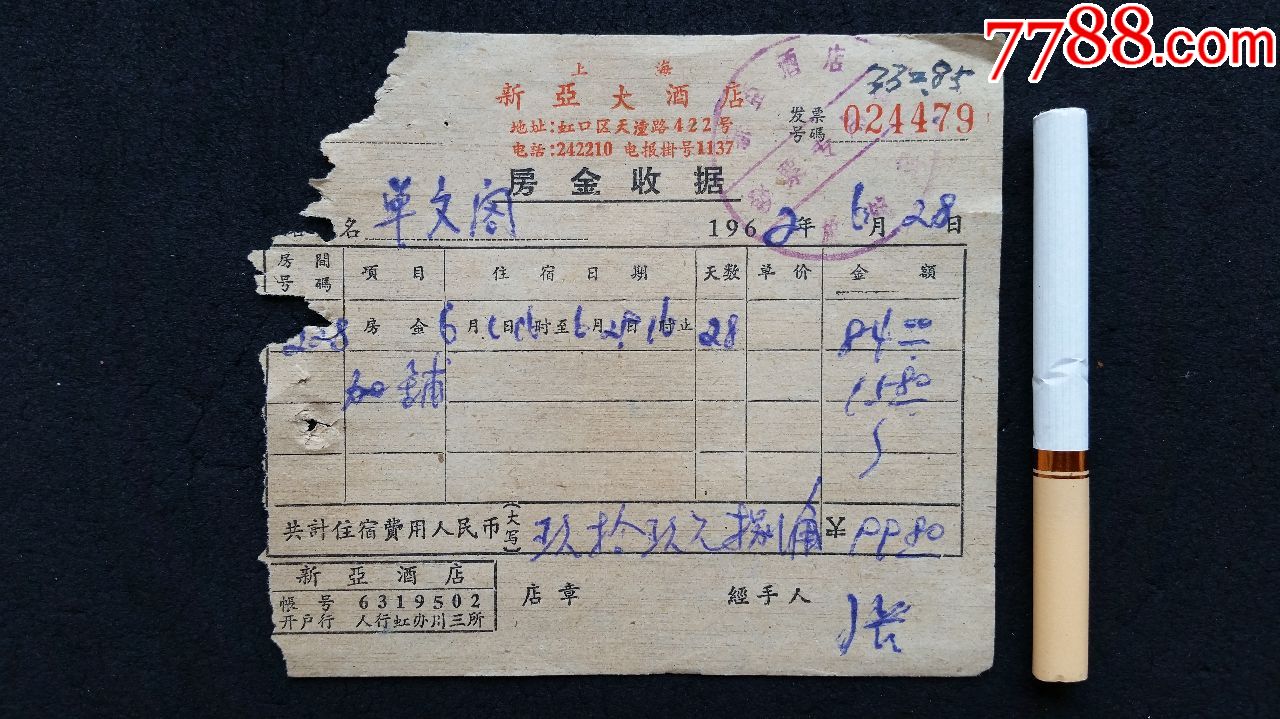 7788.com
33=85
上海
新亞大酒店
地址:虹口区天潼路422号
电話:242210 电报掛号1137
发票号碼 024479
房金收据
名 单文阁 1962年6月28日
房間号碼 項目 住宿日期 天数 单价 金額
228 房金 6月1日16时至6月28日16时止 28 84 00
加鋪 15 80
共計住宿費用人民币(大写) 玖拾玖元捌角 99 80
新亞酒店
帳号 6319502
开户行 人行虹办川三所
店章 經手人 张